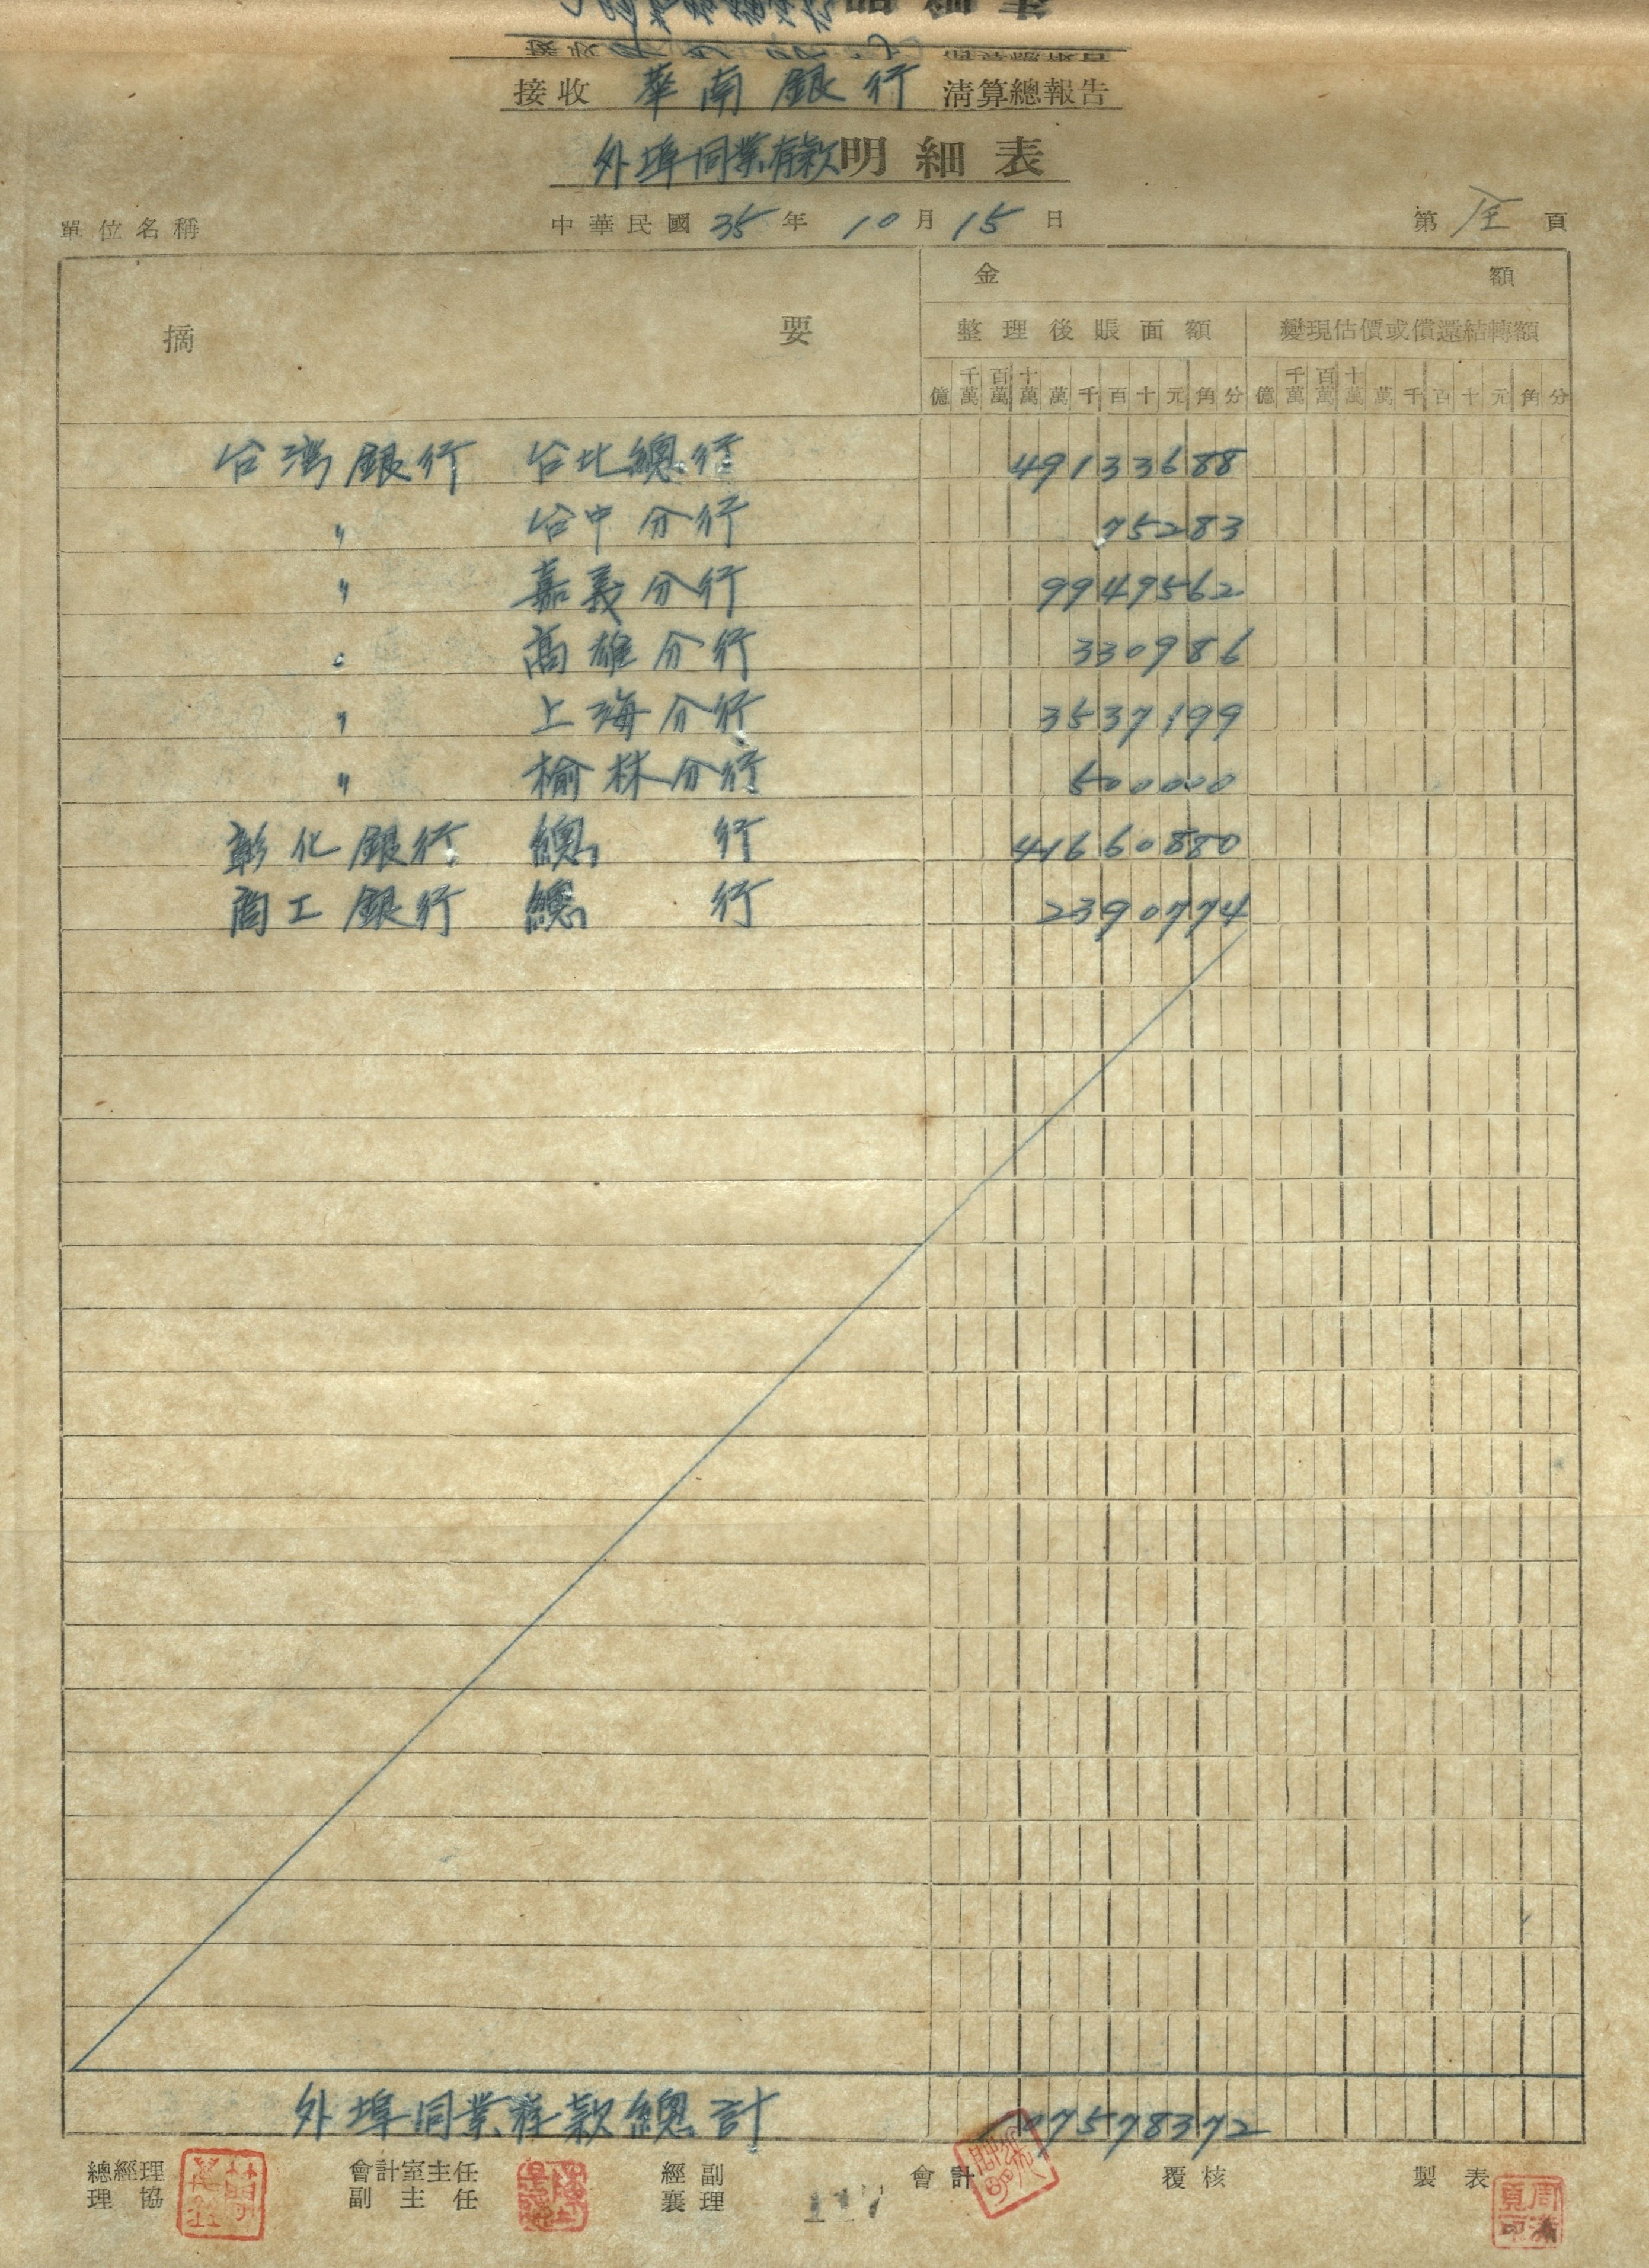 接收 華南銀行 清算總報告
外埠同業存款明細表
單位名稱 中華民國 35 年 10 月 15 日 第 全 頁
摘 要 金 額
整理後賬面額 變現估價或償還結轉額
億 千萬 百萬 十萬 萬 千 百 十 元 角 分 億 千萬 百萬 十萬 萬 千 百 十 元 角 分
台灣銀行 台北總行 49133688
〃 台中分行 75283
〃 嘉義分行 9949562
〃 高雄分行 330986
〃 上海分行 3537199
〃 榆林分行 500000
彰化銀行 總行 41660880
商工銀行 總行 2390774
外埠同業存款總計 107578372
總經理 會計室主任 經副 會計 覆核 製表
理協 副主任 襄理
117